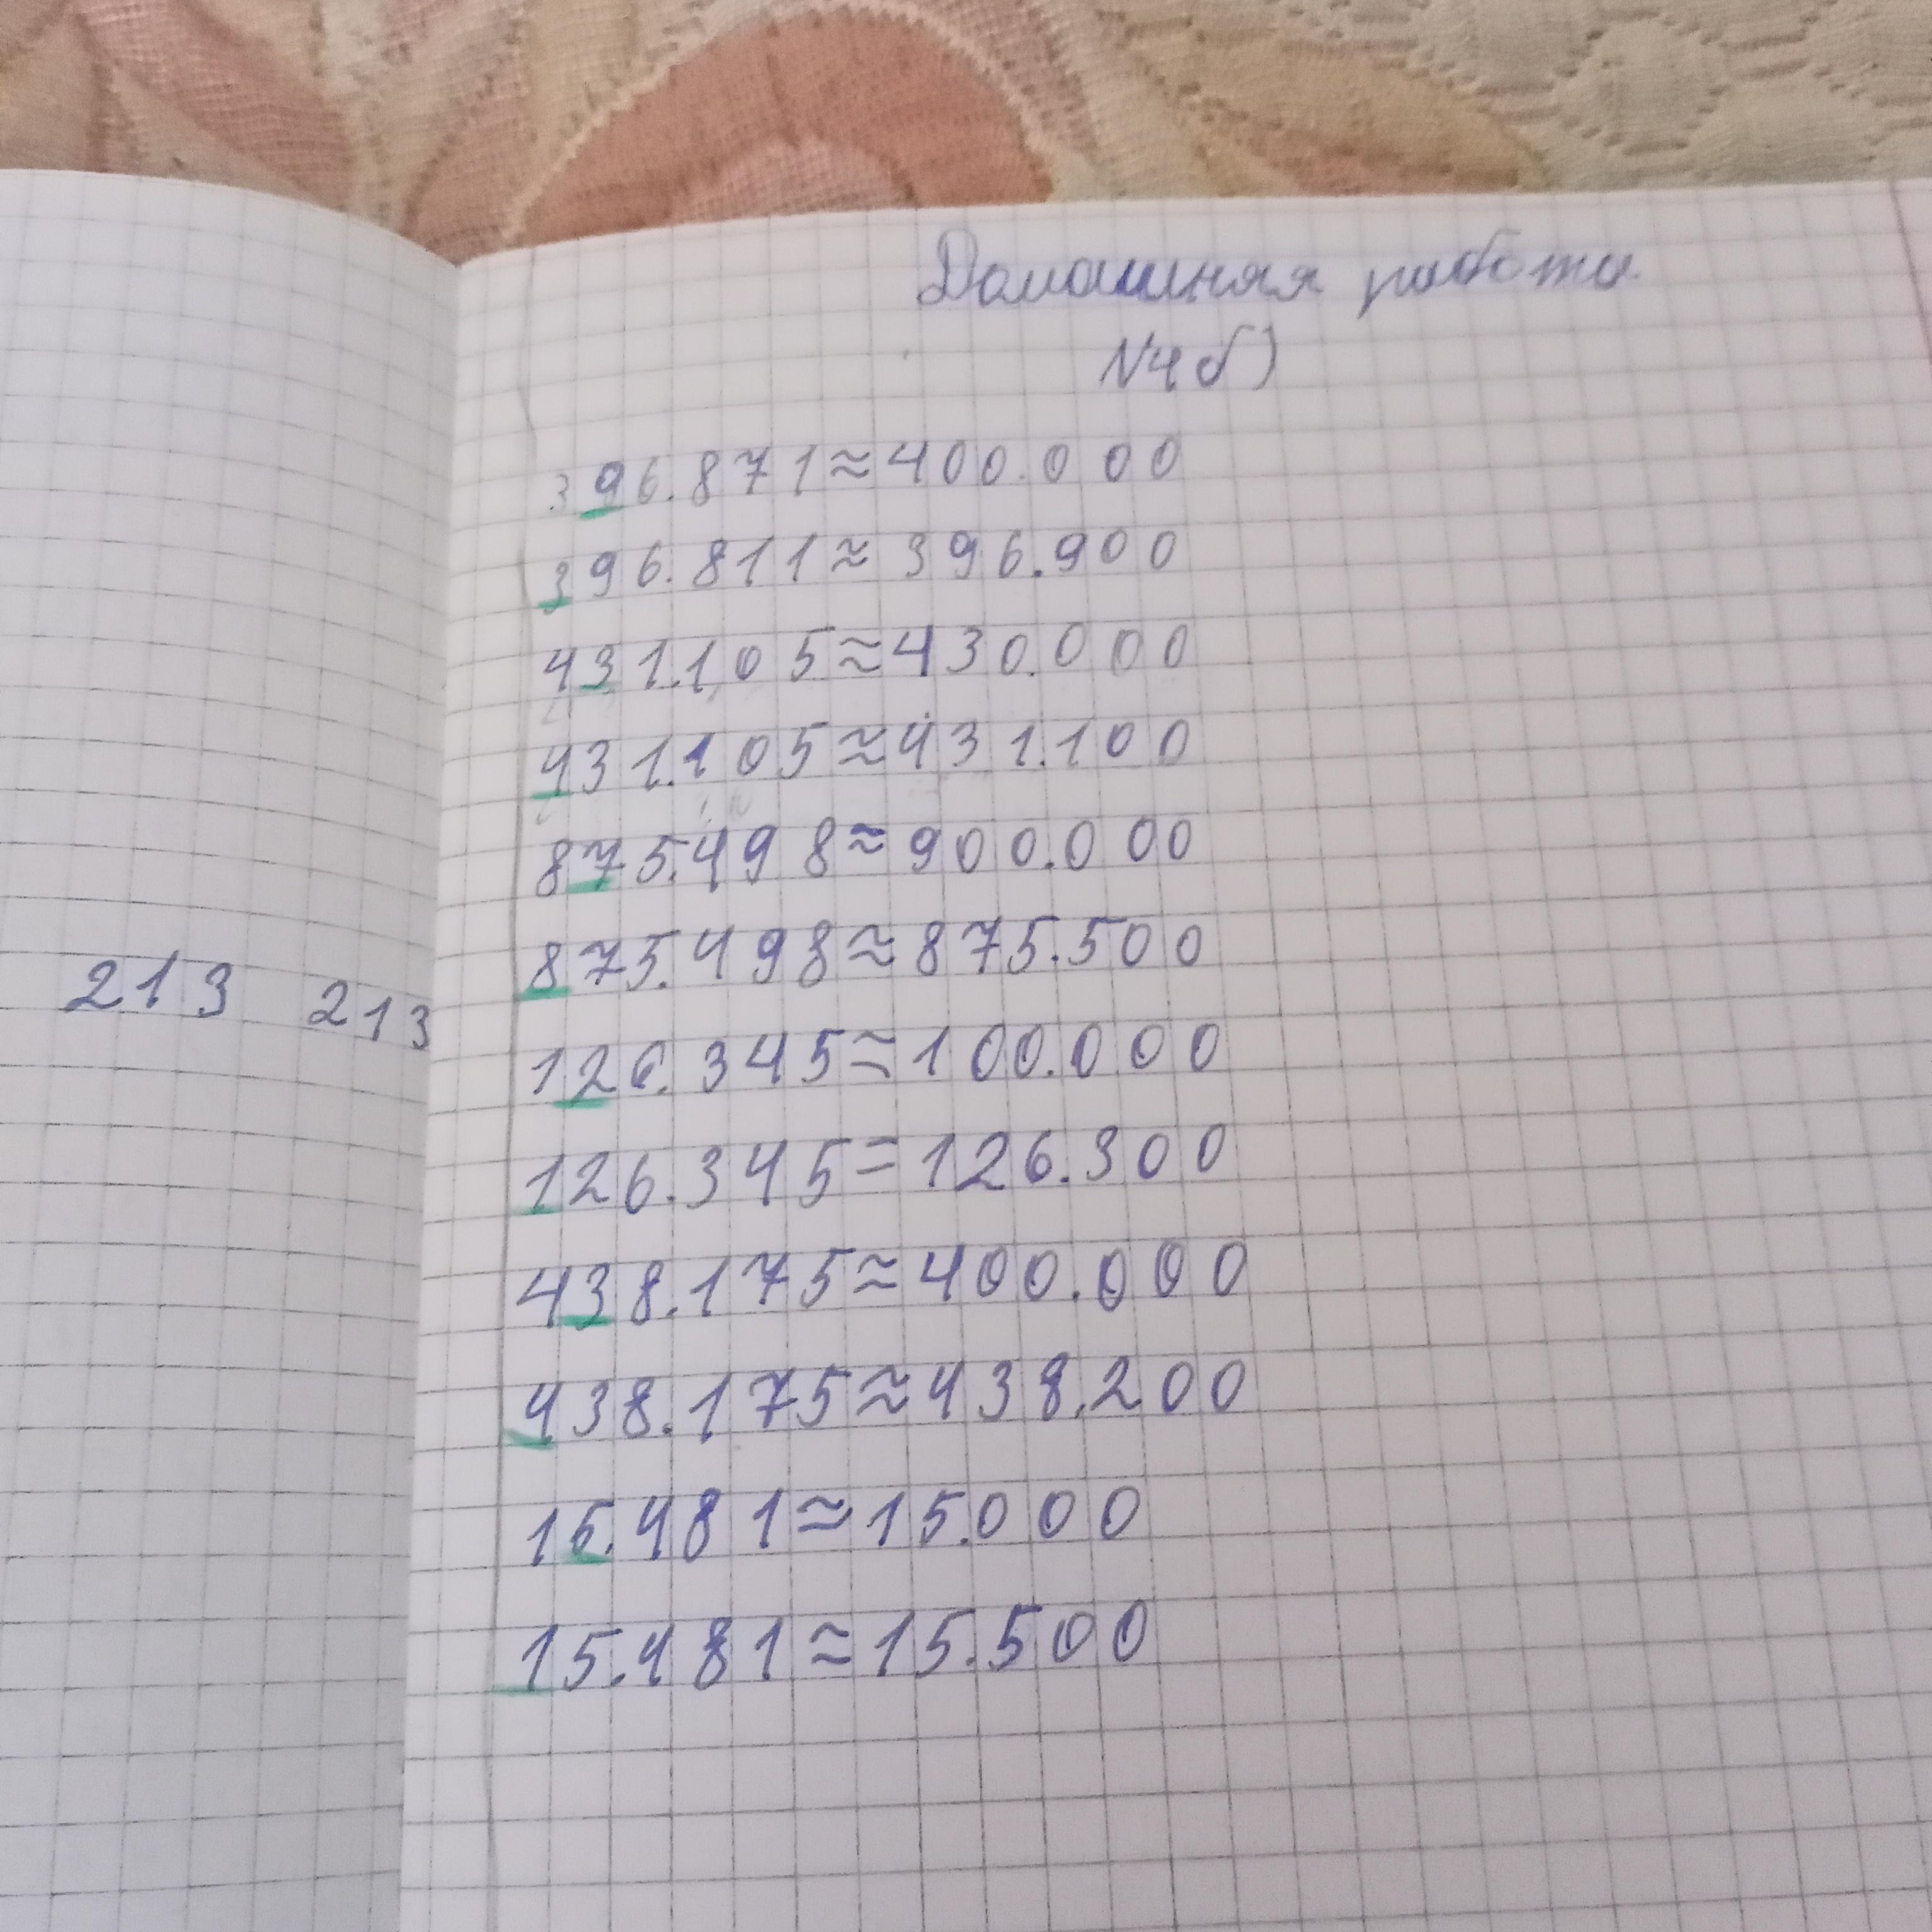 Домашняя работа
N4 б)
396.871≈400.000
396.811≈396.900
431.105≈430.000
431.105≈431.100
875.498≈900.000
875.498≈875.500
126.345≈100.000
126.345=126.300
438.175≈400.000
438.175≈438.200
15.481≈15.000
15.481≈15.500
213 213